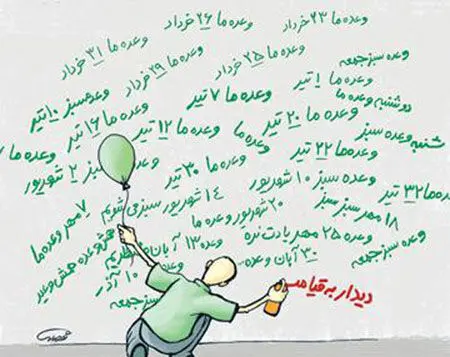 وعده ما ۲۳ خرداد
وعده ما ۲۶ خرداد
وعده ما ۳۱ خرداد
وعده ما ۲۵ خرداد
وعده سبز جمعه
وعده ما ۲۹ خرداد
وعده ما ۱ تیر
دوشنبه وعده ما
وعده ما ۷ تیر
وعده سبز ۱۰ تیر
وعده ما ۲۰ تیر
شنبه وعده سبز
وعده ما ۱۶ تیر
وعده ما ۱۲ تیر
وعده ما
وعده ما ۲۲ تیر
وعده ما ۷
سبز ۲ شهریور
وعده ما ۳۰ تیر
وعده سبز ۱۰ شهریور
وعده ما ۳۲ تیر
۱۴ شهریور سبز می شویم
۲۰ شهریور وعده ما
۱۸ مهر سبز سبز
۷ مهر وعده ما
وعده ۲۵ مهر یادت نره
وعده سبز جمعه
وعده ۱۳ آبان
۳۰ آبان وعده...
وعده
۱۰ آذر
سبز جمعه
دیدار به قیامت